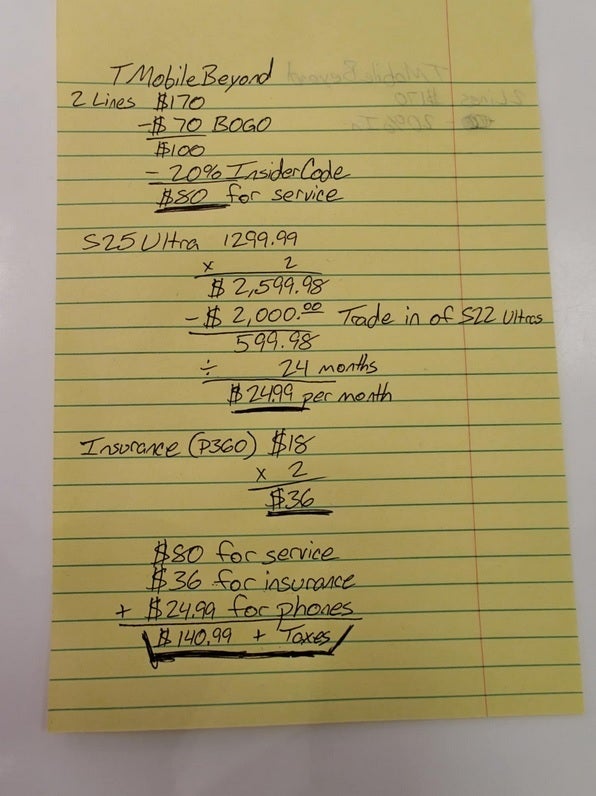 T Mobile Beyond
2 Lines $170
- $70 BOGO
$100
- 20% Insider Code
$80 for service
S25 Ultra 1299.99
x 2
$2,599.98
- $2,000.00 Trade in of S22 Ultras
599.98
÷ 24 months
$24.99 per month
Insurance (P360) $18
x 2
$36
$80 for service
$36 for insurance
+ $24.99 for phones
$140.99 + Taxes